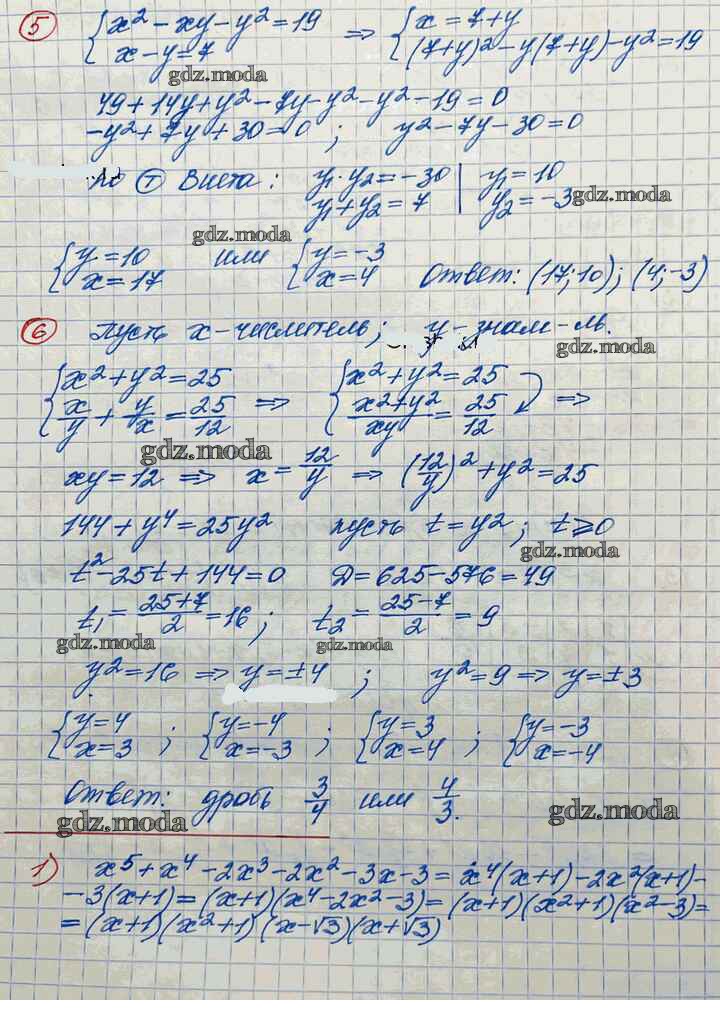 5 { x² - xy - y² = 19 ⇒ { x = 7 + y
x - y = 7 (7+y)² - y(7+y) - y² = 19
gdz.moda
49 + 14y + y² - 7y - y² - y² - 19 = 0
-y² + 7y + 30 = 0 ; y² - 7y - 30 = 0
По Т Виета: y₁·y₂ = -30 | y₁ = 10
y₁ + y₂ = 7 | y₂ = -3
gdz.moda
gdz.moda
{ y = 10 или { y = -3
x = 17 x = 4 Ответ: (17; 10); (4; -3)
6 Пусть x - числитель; y - знам-ль.
gdz.moda
{ x² + y² = 25 { x² + y² = 25
x/y + y/x = 25/12 ⇒ (x²+y²)/xy = 25/12 ⇒
gdz.moda
xy = 12 ⇒ x = 12/y ⇒ (12/y)² + y² = 25
144 + y⁴ = 25y² пусть t = y² ; t ⩾ 0
gdz.moda
t² - 25t + 144 = 0 D = 625 - 576 = 49
t₁ = (25+7)/2 = 16 ; t₂ = (25-7)/2 = 9
gdz.moda gdz.moda
y² = 16 ⇒ y = ±4 ; y² = 9 ⇒ y = ±3
{ y = 4 ; { y = -4 ; { y = 3 ; { y = -3
x = 3 x = -3 x = 4 x = -4
Ответ: дробь 3/4 или 4/3.
gdz.moda gdz.moda
1) x⁵ + x⁴ - 2x³ - 2x² - 3x - 3 = x⁴(x+1) - 2x²(x+1) -
- 3(x+1) = (x+1)(x⁴ - 2x² - 3) = (x+1)(x²+1)(x²-3) =
= (x+1)(x²+1)(x-√3)(x+√3)